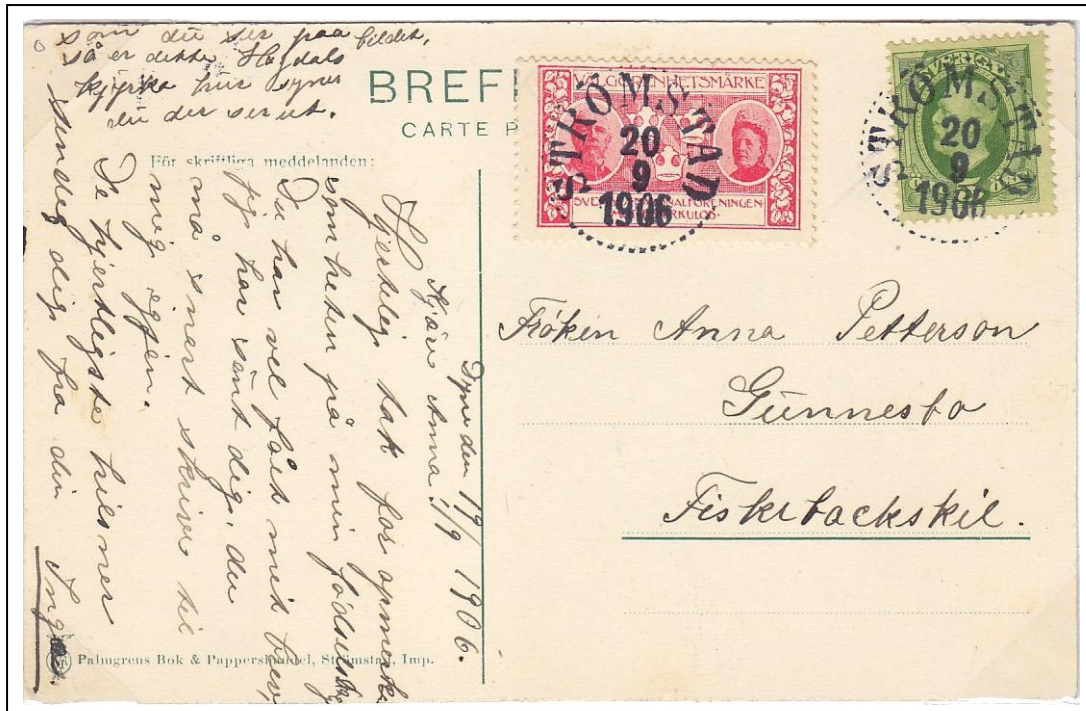 som du ser paa bildet,
så er dette Hogdals
kjyrka hur synes
du der ser ut.
BREFK
CARTE P
VÄLGÖRENHETSMÄRKE
SVE
HALFÖRENINGEN
RKULOS
STRÖMSTAD
20
9
1906
SVERIGE
STRÖMSTAD
20
9
1906
För skriftliga meddelanden:
Dyne den 19/9 1906.
Kjære Anna!
Hjertelig tak for opmerk
somheten på min födselsdag
Du har vel fået mit brev,
jeg har sent dig. du
må snart skrive til
mig igjen.
De hjertligste hilsner
sendes dig fra din Inga.
Fröken Anna Petterson
Gunnesbo
Fiskebackskil.
Palmgrens Bok & Pappershandel, Strömstad, Imp.